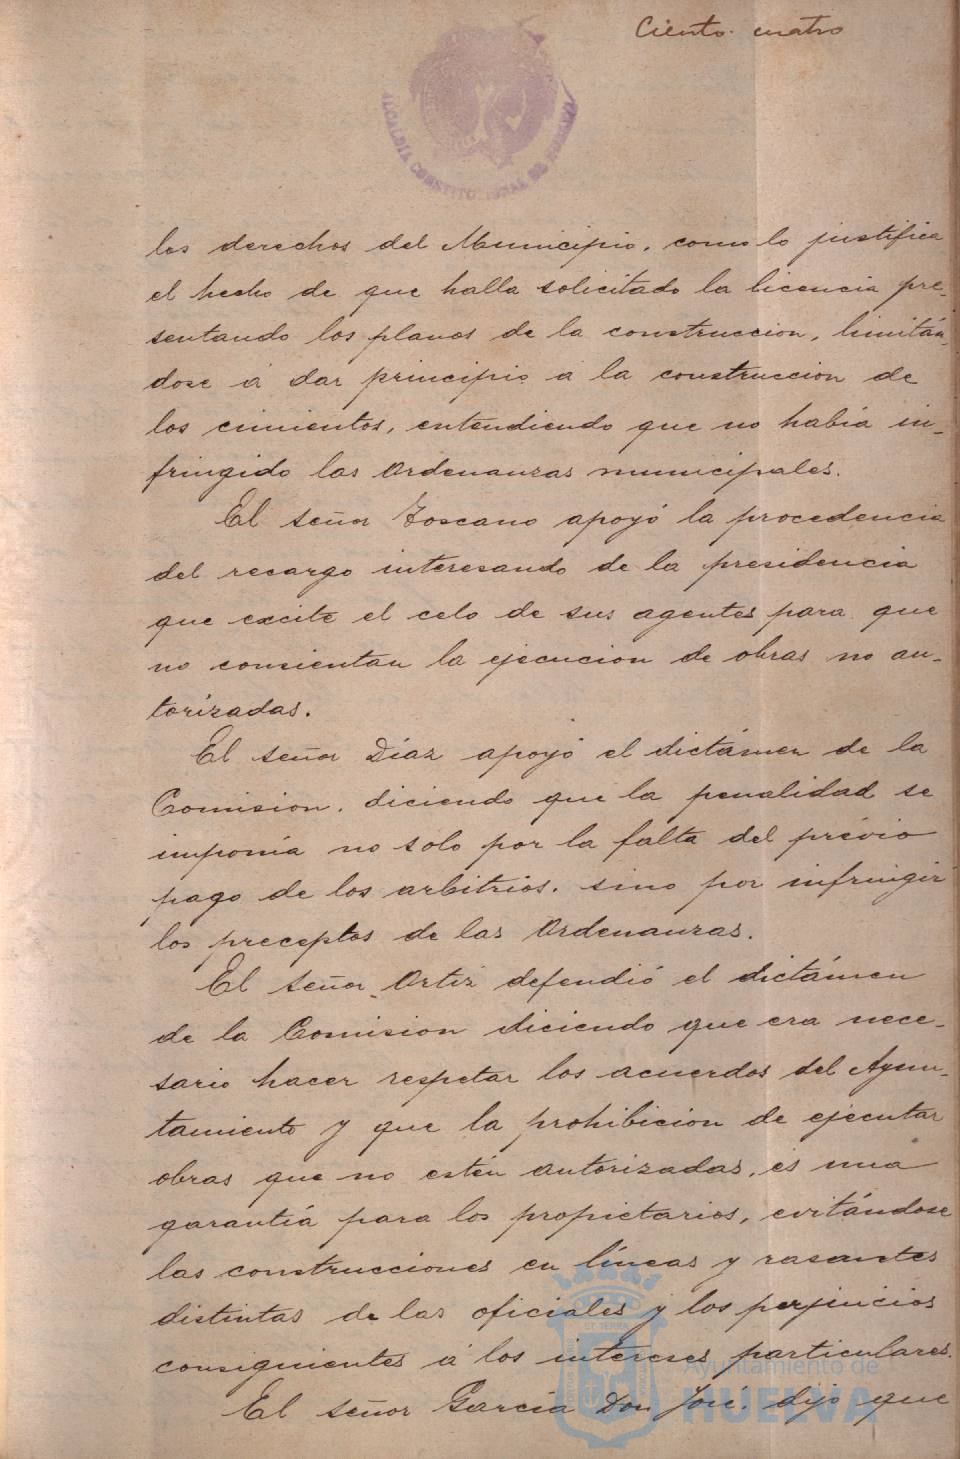 Ciento cuatro
ALCALDÍA CONSTITUCIONAL DE
los derechos del Municipio, como lo justifica
el hecho de que halla solicitado la licencia pre-
sentando los planos de la construccion, limitán-
dose á dar principio a la construccion de
los cimientos, entendiendo que no había in-
fringido las Ordenanzas municipales.
El señor Toscano apoyó la procedencia
del recargo interesando de la presidencia
que excite el celo de sus agentes para que
no consientan la ejecucion de obras no au-
torizadas.
El señor Díaz apoyó el dictámen de la
Comision, diciendo que la penalidad se
imponía no solo por la falta del prévio
pago de los arbitrios, sino por infringir
los preceptos de las Ordenanzas.
El señor Ortiz defendió el dictámen
de la Comision diciendo que era nece-
sario hacer respetar los acuerdos del Ayun-
tamiento y que la prohibicion de ejecutar
obras que no estén autorizadas, es una
garantía para los propietarios, evitándose
las construcciones en líneas y rasantes
distintas de las oficiales y los perjuicios
consiguientes á los intereses particulares.
El señor García Don José, dijo que
Ayuntamiento de
HUELVA